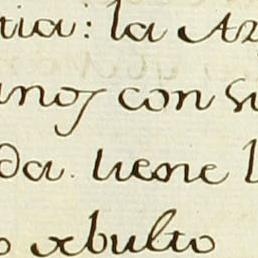 tia: la Az
anos con su
da. tiene l
o ebulto